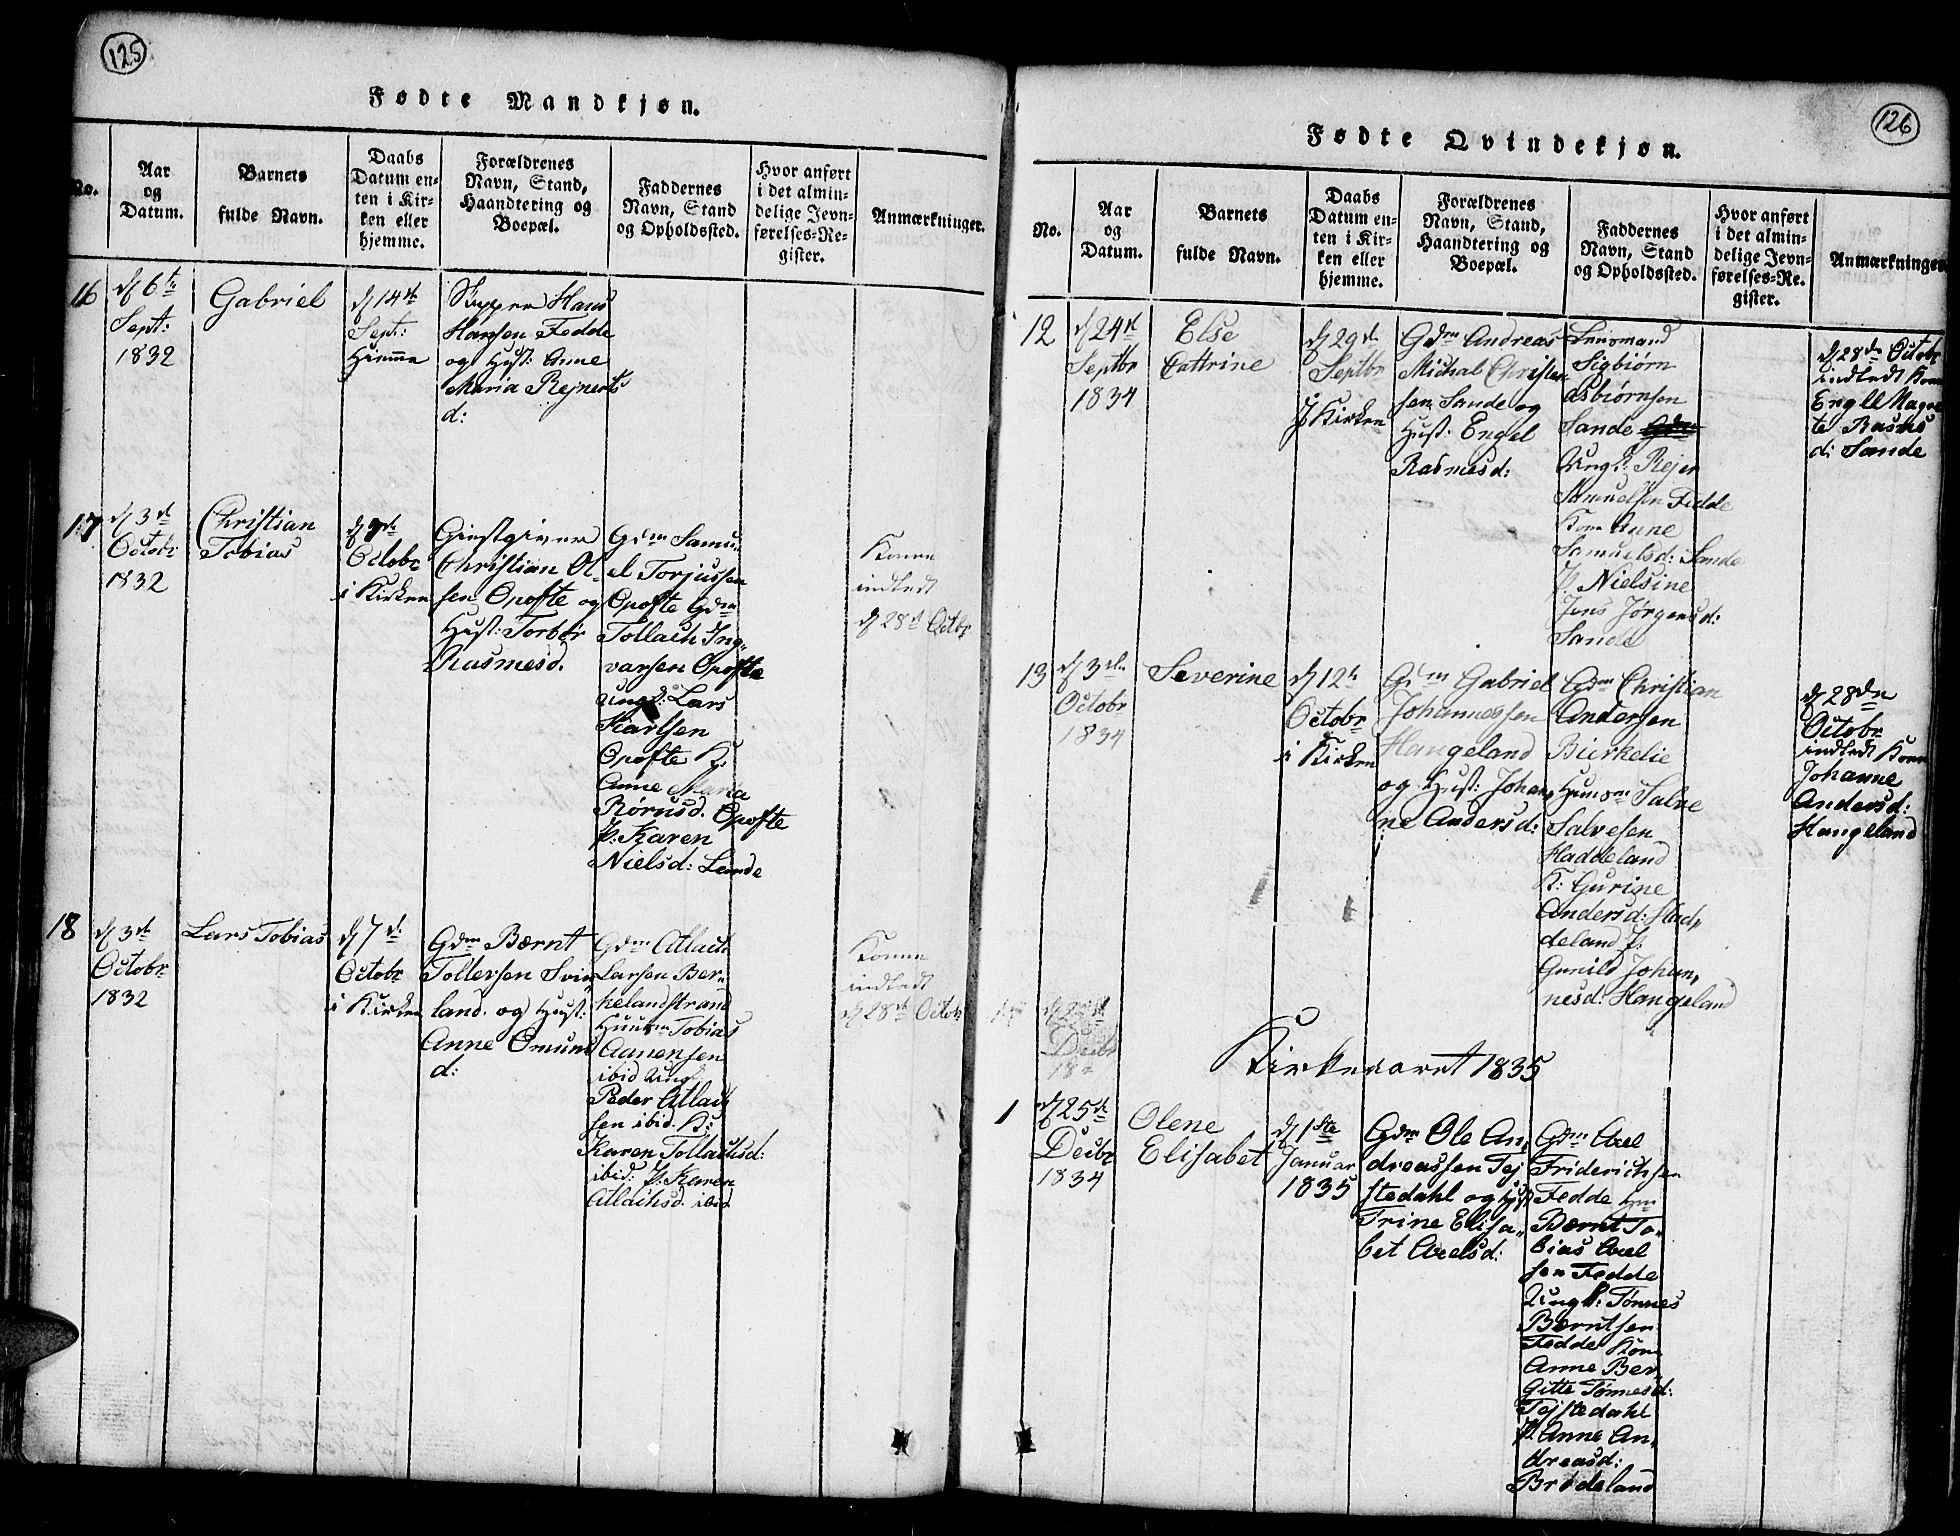 125
Fødte Mandkjøn.
No.
Aar
og
Datum.
Barnets
fulde Navn.
Daabs
Datum en-
ten i Kir-
ken eller
hjemme.
Forældrenes
Navn, Stand,
Haandtering og
Boepæl.
Faddernes
Navn, Stand
og Opholdssted.
Hvor anført
i det almin-
delige Jevn-
førelses-Re-
gister.
Anmærkninger.
16
d 6te
Sept:
1832
Gabriel
d 14de
Sept:
Hiemme
Skipper Hans
Hansen Fedde
og Hust: Anne
Maria Rejnerts
d:
17
d 3de
Octobr
1832
Christian
Tobias
d 7de
Octobr
i Kirken
Giestgiver
Christian Ol-
sen Opofte og
Hust: Torbor
Rasmesd.
Gdm Samu-
el Torjussen
Opofte Gdm
Tollach Ing-
varsen Opofte
Ungk: Lars
Karlsen
Opofte K:
Anne Maria
Rørusd. Opofte
P: Karen
Nielsd: Lande
Konen
indledt
d 28de Octbr
18
d 3de
Octobr
1832
Lars Tobias
d 7de
Octobr
i Kirken
Gdm Bærnt
Tollersen Svin-
land. og Hust:
Anne Omund
d:
Gdm Atlach
Larsen Ber-
kelandstrand
Huusm Tobias
Aanensen
ibid Ungk
Peder Atlach
sen ibid. K:
Karen Tollachsd:
ibid: P: Karen
Atlachsd. ibid
Konen
indledt
d 28de Octob
126
Fødte Qvindekjøn.
No.
Aar
og
Datum.
Barnets
fulde Navn.
Daabs
Datum en-
ten i Kir-
ken eller
hjemme.
Forældrenes
Navn, Stand,
Haandtering og
Boepæl.
Faddernes
Navn, Stand
og Opholdssted.
Hvor anført
i det almin-
delige Jevn-
førelses-Re-
gister.
Anmærkninger
12
d 24de
Septbr
1834
Else
Cattrine
d 29d
Septbr
I Kirken
Gdm Andreas
Michal Christen
sen Sande og
Hust: Engel
Rasmesd:
Lensmand
Sigbiørn
Asbiørnsen
Sande
Ungk: Rejer
Samuelsen Fedde
Kone Anne
Samuelsd: Sande
P. Nielsine
Jens Jørgensd:
Sande
d 28de Octobr
indledt Kone
Engle Magre
te Rasms
d: Sande
13
d 3de
Octobr
1834
Severine
d 12te
Octobr
i Kirken
Gdm Gabriel
Johannessen
Haugeland
og Hust: Johan-
ne Andersd:
Gdm Christian
Andersen
Bierkelie
Huusm Salve
Salvesen
Haddeland
K: Gurine
Andersd: Had-
deland P:
Gunild Johan-
nesd: Haugeland
d 28de
Octobr
indledt Kone
Johanne
Andersd:
Haugeland
Kirkeaaret 1835
1
d 25de
Decbr
1834
Olene
Elisabet
d 1ste
Januar
1835
Gdm Ole An-
dreassen Tej
stedahl og Hust
Trine Elisa-
bet Axelsd:
Gdm Axel
Friderichsen
Fedde
Bærnt To-
bias Axel
sen Fedde
Ungk: Tønnes
Bærntsen
Fedde Kone
Anne Ber-
gitte Tønnesd:
Tejstedahl
P. Anne An-
dreasd:
Brødeland